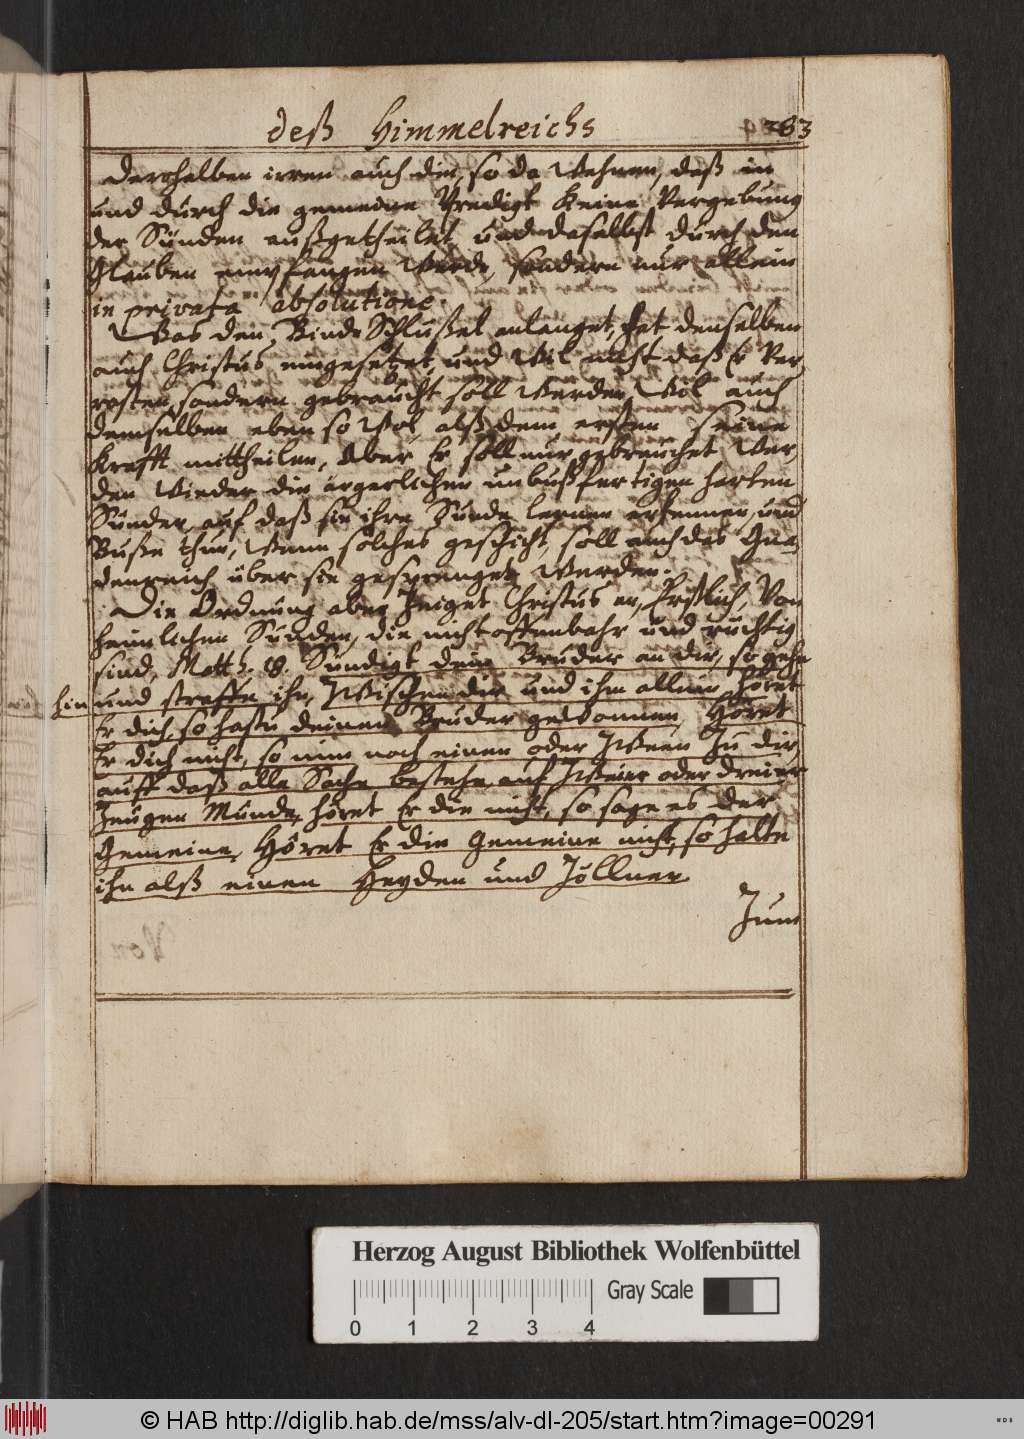 deß Himmelreichs 283
Derohalben irren auch die, so da Wehnen, daß in
und durch die gemeine Predigt Keine Vergebung
der Sünden außgetheilet, und daselbst durch den
Glauben empfangen Werde, sondern nur allein
in privata absolutione.
Was den Binde Schlüßel anlanget, hat denselben
auch Christus eingesetzet, und Wil nicht daß Er Ver-
rosten, sondern gebraucht soll Werden, Wil auch
demselben eben so Wol, alß dem ersten seine
Krafft mittheilen, Aber Er soll nur gebrauchet Wer-
den Wieder die ärgerlichen unbußfertigen harten
Sünder, auf daß sie ihre Sünde lernen erkennen, und
Buße thun, Wann solches geschicht, soll auch das Gna-
denreich über sie gesprenget Werden.
Die Ordnung aber Zeiget Christus an, Erstlich, Von
heimlichen Sünden, die nicht offenbahr und ruchtig
sind, Matth. 18. Sündigt dein Bruder an dir, so gehe
hin und straffe ihn, Zwischen dir und ihm allein, höret
Er dich, so hastu deinen Bruder gewonnen, Höret
Er dich nicht, so nim noch einen oder Zween Zu dir,
auff daß alle Sache bestehe auf Zweier oder dreier
Zeugen Munde, höret Er die nicht, so sage es der
Gemeine, Höret Er die Gemeine nicht, so halte
ihn alß einen Heyden und Zöllner.
Zum
Herzog August Bibliothek Wolfenbüttel
Gray Scale
0 1 2 3 4
© HAB http://diglib.hab.de/mss/alv-dl-205/start.htm?image=00291
WDB